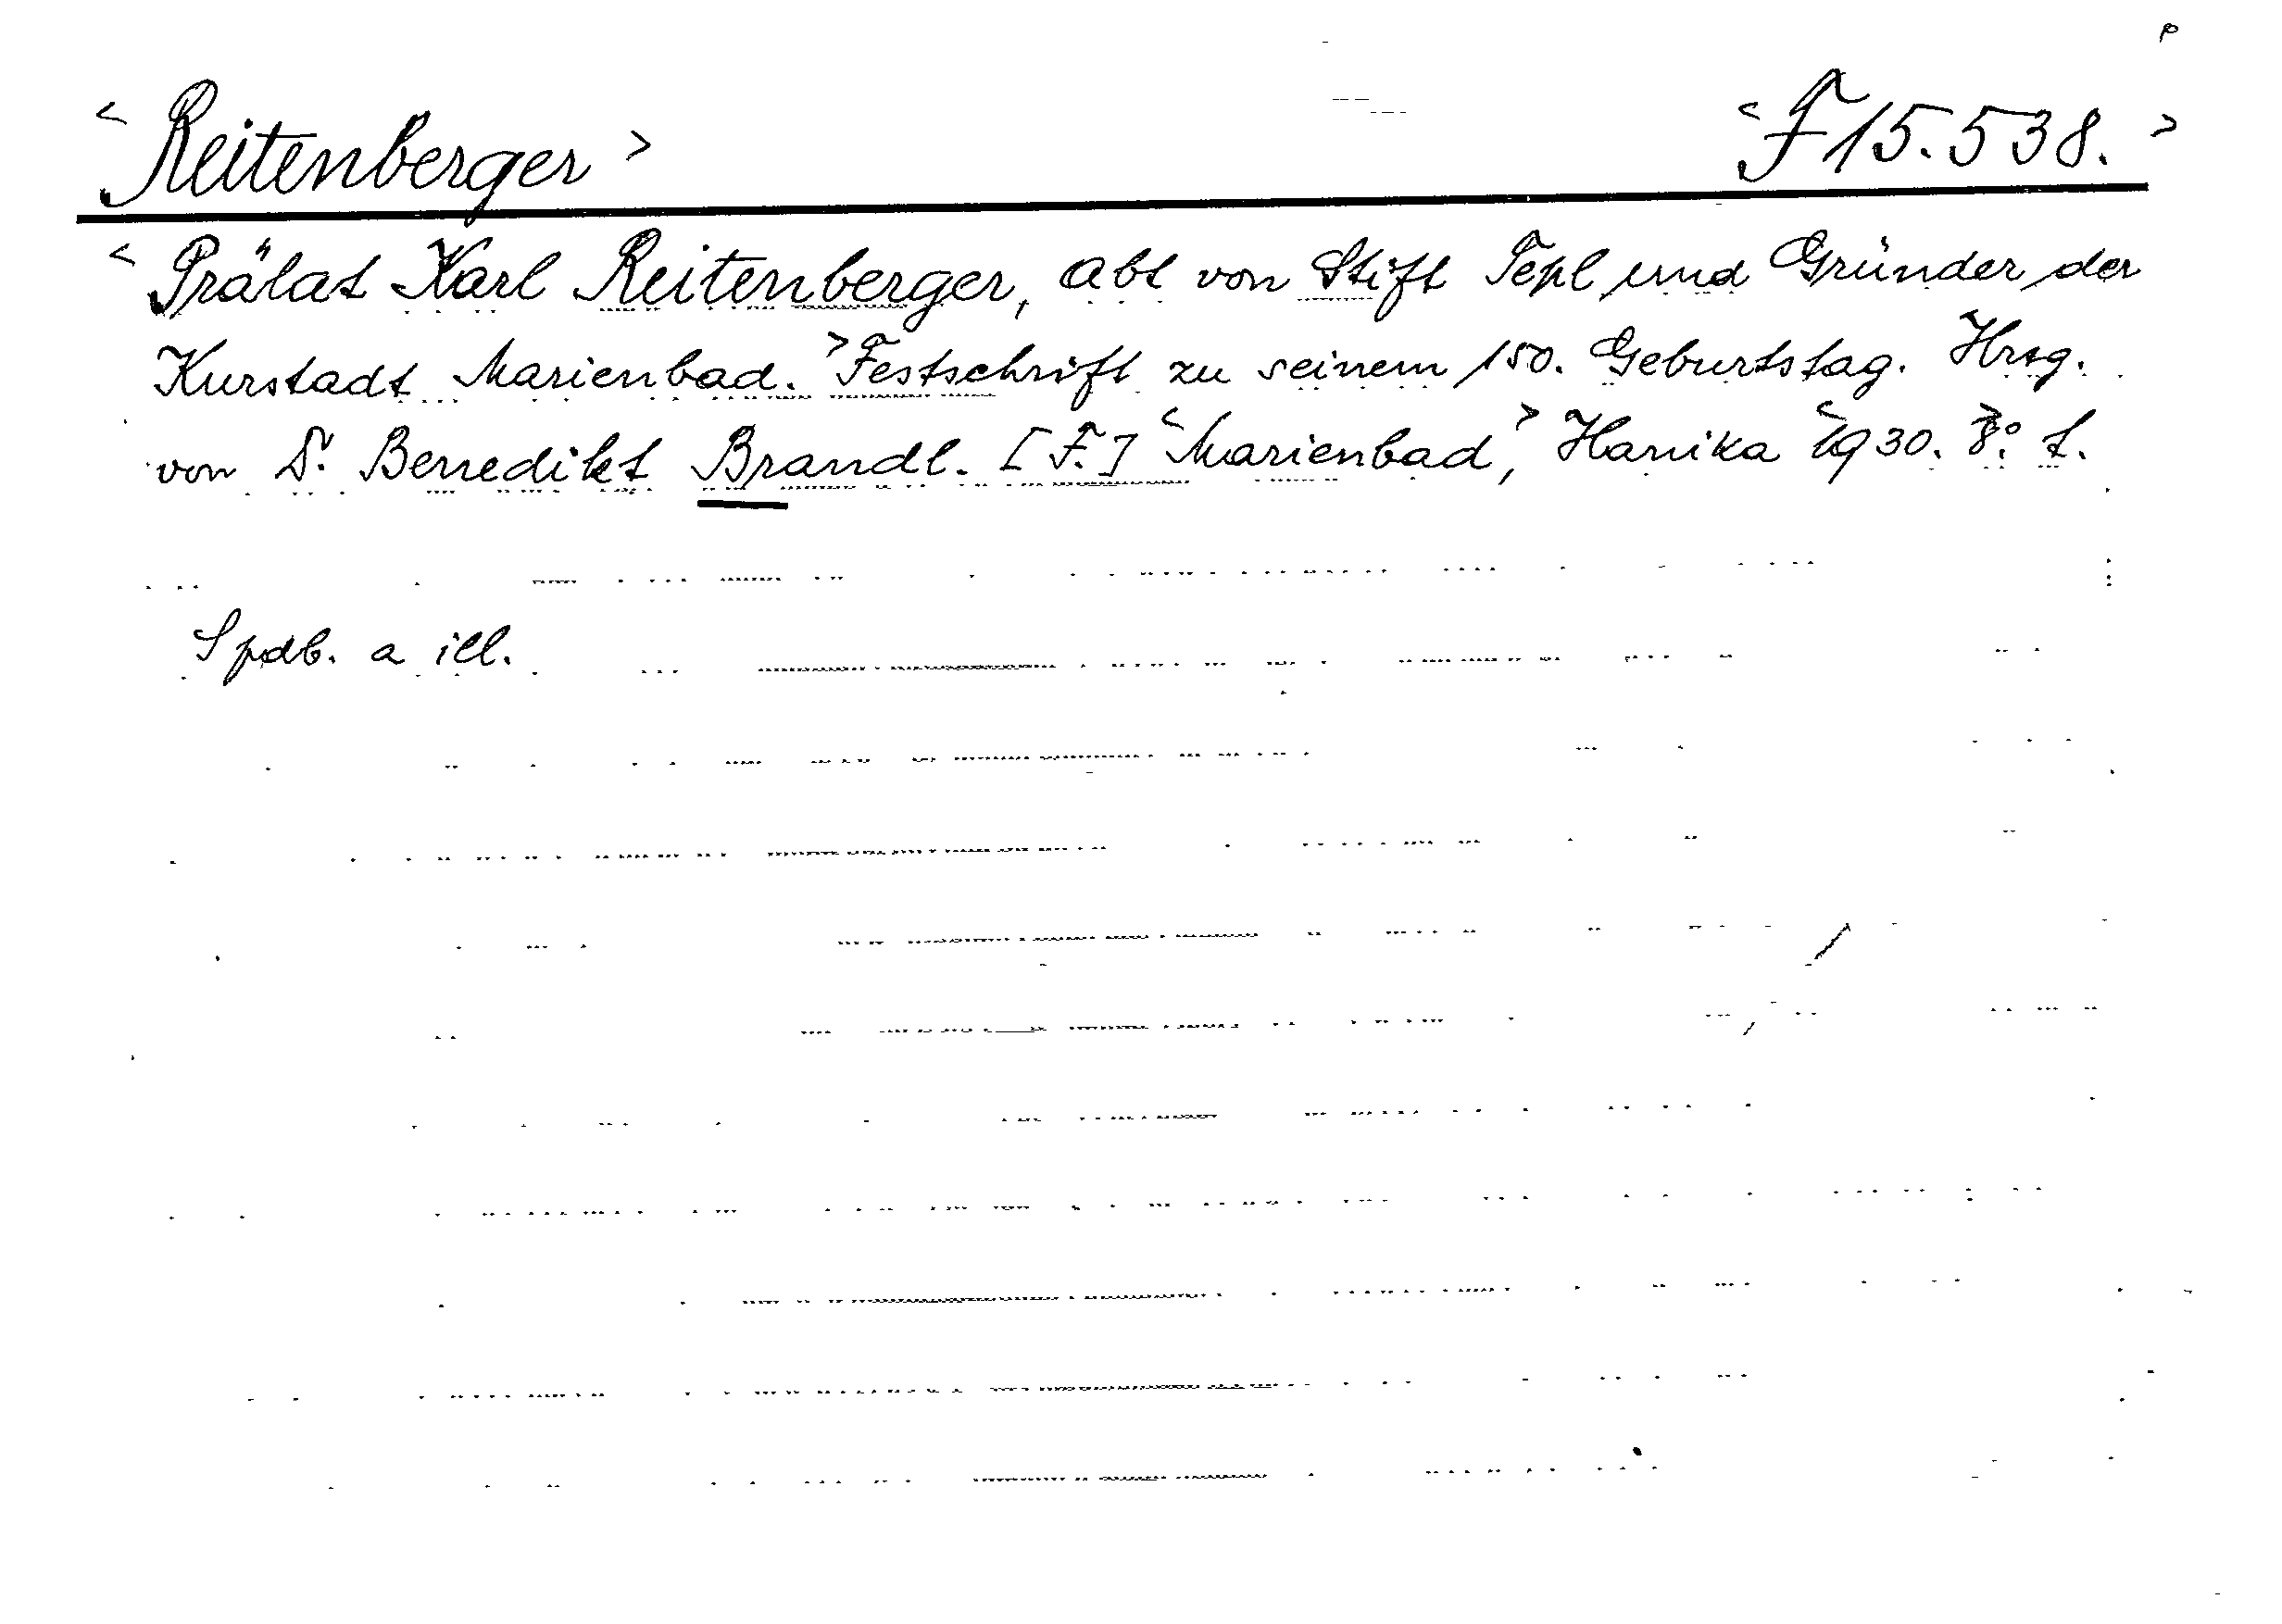 <Reitenberger> <F 15.538.>
<Prälat Karl Reitenberger, Abt von Stift Tepl und Gründer der
Kurstadt Marienbad.> Festschrift zu seinem 150. Geburtstag. Hrsg.
von D. Benedikt Brandl. [F.] <Marienbad,> Hanika <1930.> 8° L.
Spdb. a ill.